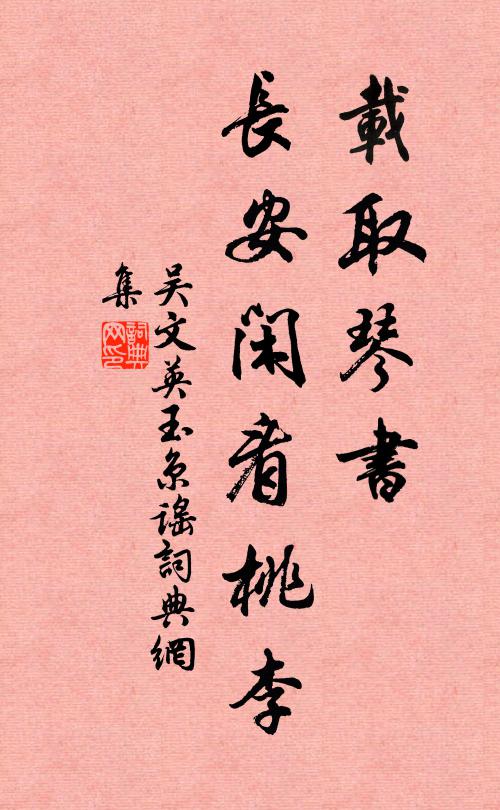 載取琴書
長安閑看桃李
吳文英玉京謠詞典網
集
詞典網印